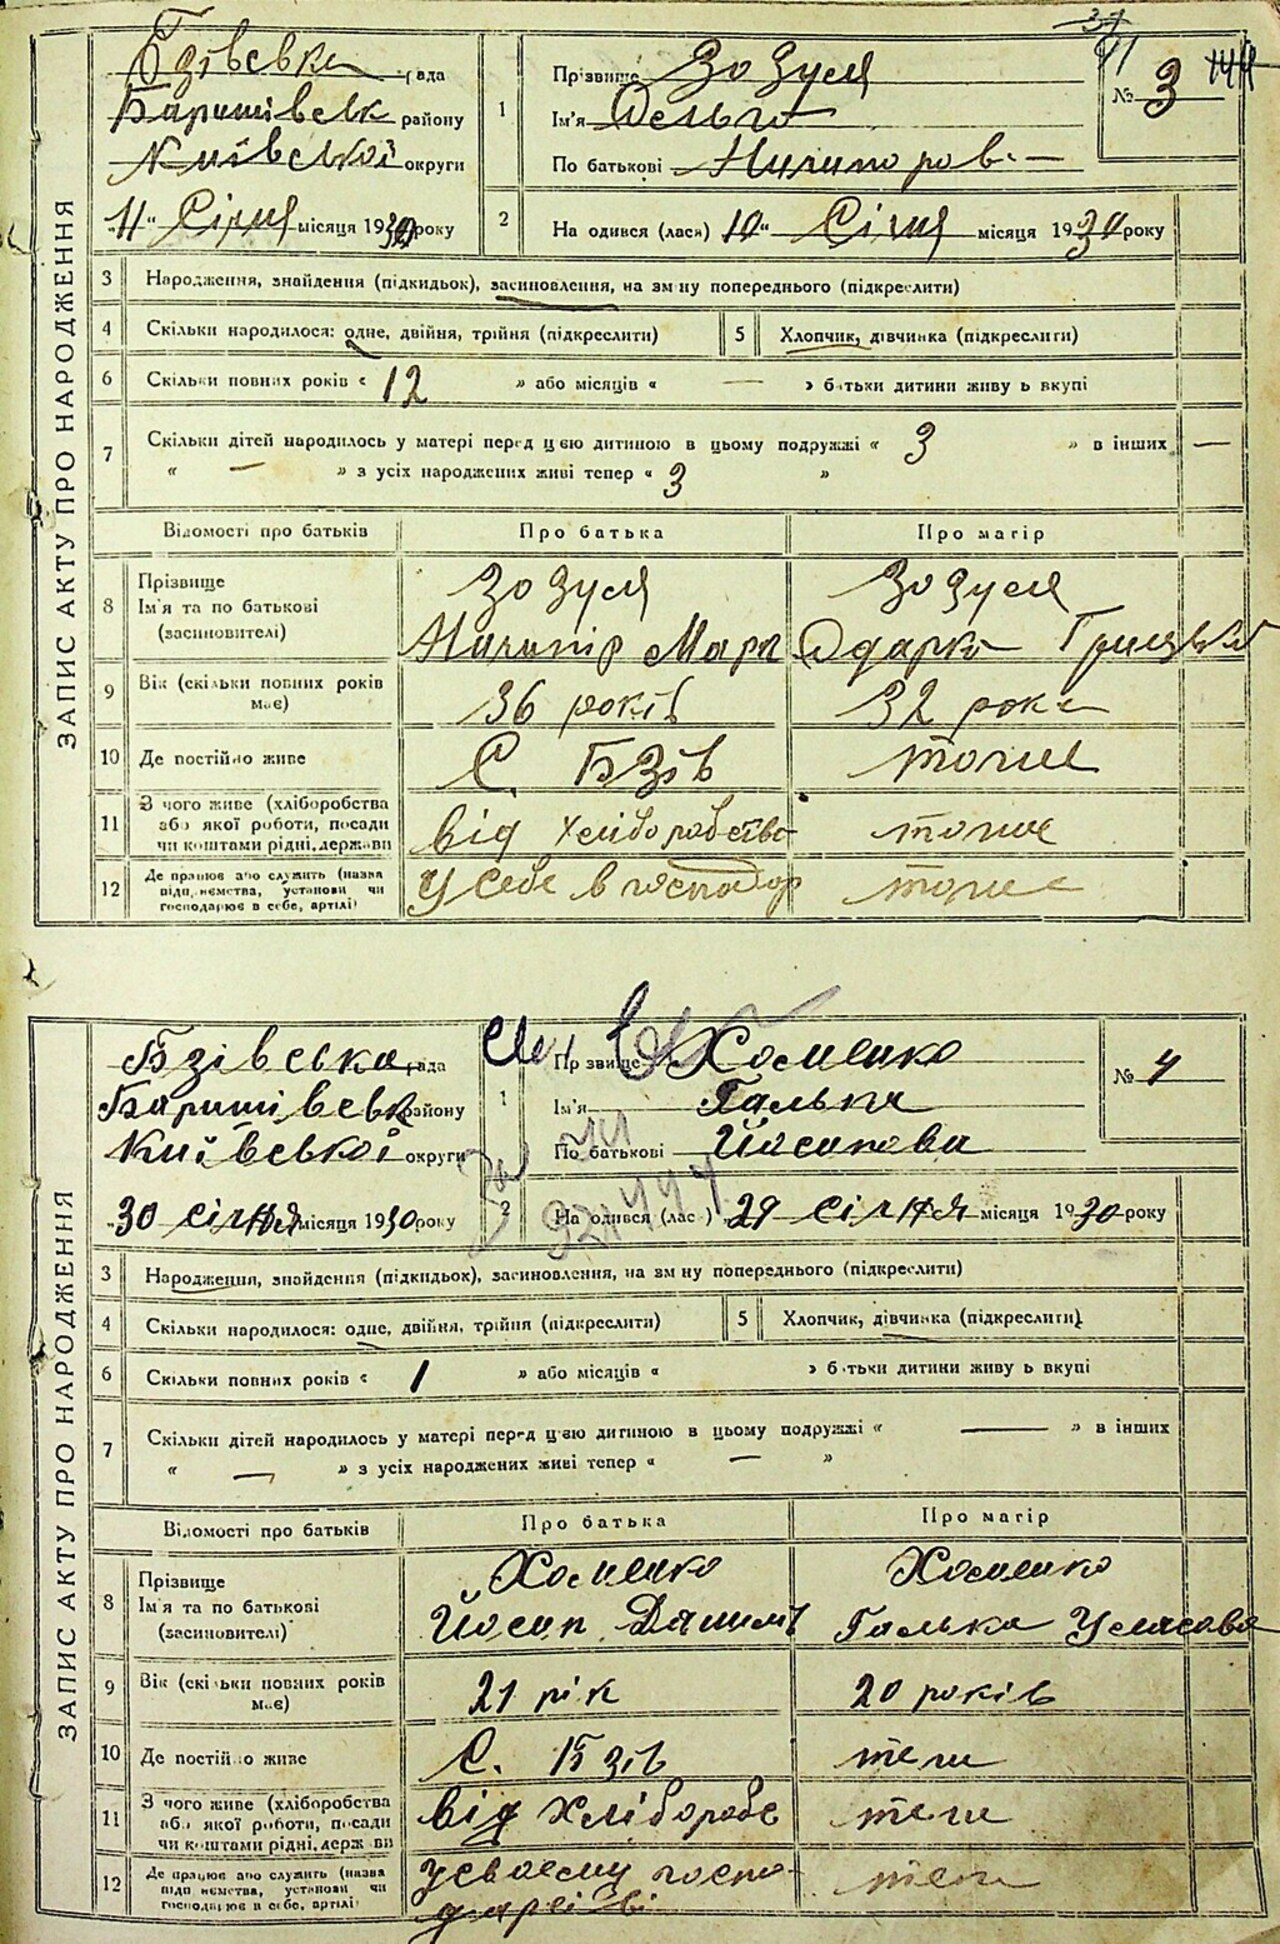 ЗАПИС АКТУ ПРО НАРОДЖЕННЯ
Бзівська рада
Баришівськ району
Київської округи
"11" Січня місяця 1930 року
1
Прізвище Зозуля
Ім'я Ольга
По батькові Ничипоров.
№ 3
2
На одився (лася) 10" Січня місяця 1930 року
3 Народження, знайдення (підкидьок), засиновлення, на зміну попереднього (підкреслити)
4 Скільки народилося: одне, двійня, трійня (підкреслити) 5 Хлопчик, дівчинка (підкреслити)
6 Скільки повних років « 12 » або місяців « — » батьки дитини живуть вкупі
7 Скільки дітей народилось у матері перед цією дитиною в цьому подружжі « 3 » в інших —
« — » з усіх народжених живі тепер « 3 »
Відомості про батьків Про батька Про матір
8 Прізвище Зозуля Зозуля
Ім'я та по батькові
(засиновителі) Ничипір Марк Одарка Грицьков
9 Вік (скільки повних років має) 36 років 32 роки
10 Де постійно живе С. Бзів тоже
11 З чого живе (хліборобства
або якої роботи, посади
чи коштами рідні, держави від хліборобства тоже
12 Де працює або служить (назва
підприємства, установи чи
господарює в себе, артілі) У себе в господар тоже
ЗАПИС АКТУ ПРО НАРОДЖЕННЯ
Бзівська рада
Баришівськ району
Київської округи
30 січня місяця 1930 року
1
Пр звище Хоменко
Ім'я Галька
По батькові Йосипова
№ 4
2
На одився (лас ) 29 січня місяця 1930 року
3 Народження, знайдення (підкидьок), засиновлення, на зміну попереднього (підкреслити)
4 Скільки народилося: одне, двійня, трійня (підкреслити) 5 Хлопчик, дівчинка (підкреслити)
6 Скільки повних років « 1 » або місяців « » батьки дитини живуть вкупі
7 Скільки дітей народилось у матері перед цією дитиною в цьому подружжі « — » в інших
« — » з усіх народжених живі тепер « — »
Відомості про батьків Про батька Про матір
8 Прізвище Хоменко Хоменко
Ім'я та по батькові
(засиновителі) Йосип Галька
9 Вік (скільки повних років має) 21 рік 20 років
10 Де постійно живе С. Бзів теж
11 З чого живе (хліборобства
або якої роботи, посади
чи коштами рідні, держави від хлібороб теж
12 Де працює або служить (назва
підприємства, установи чи
господарює в себе, артілі) у своєму госпо-
дарстві теж